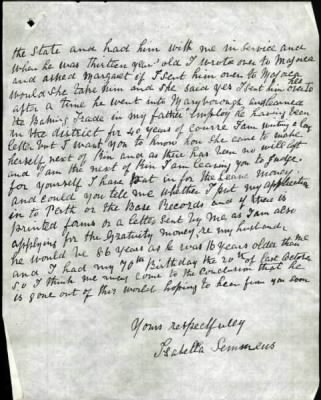 the State and had him with me in service and
when he was thirteen year old I wrote over to Majorca
and asked Margaret if I sent him over to Majorca
would she take him and she said yes I sent him over to her
after a time he went into Maryborough and learned
the Baking Trade in my father Employ he having been
in the district for 40 years of course I am writing a
letter but I want you to know how she came to make
herself next of Kin and as there has been no will left
and I am the next of Kin I am leaving you to Judge
for yourself I have Put in for the Leave money
and could you tell me whether I put my application
in to Perth or the Base Records and if there is
printed forms or a letter sent by me as I am also
applying for the Gratuity money re my husband
he would be 86 years as he was 16 years older than me
and I had my 70th Birthday the 20th of last October
so I think we may come to the conclusion that he
is gone out of this world hoping to hear from you soon
Yours respectfully
Isabella Semmens